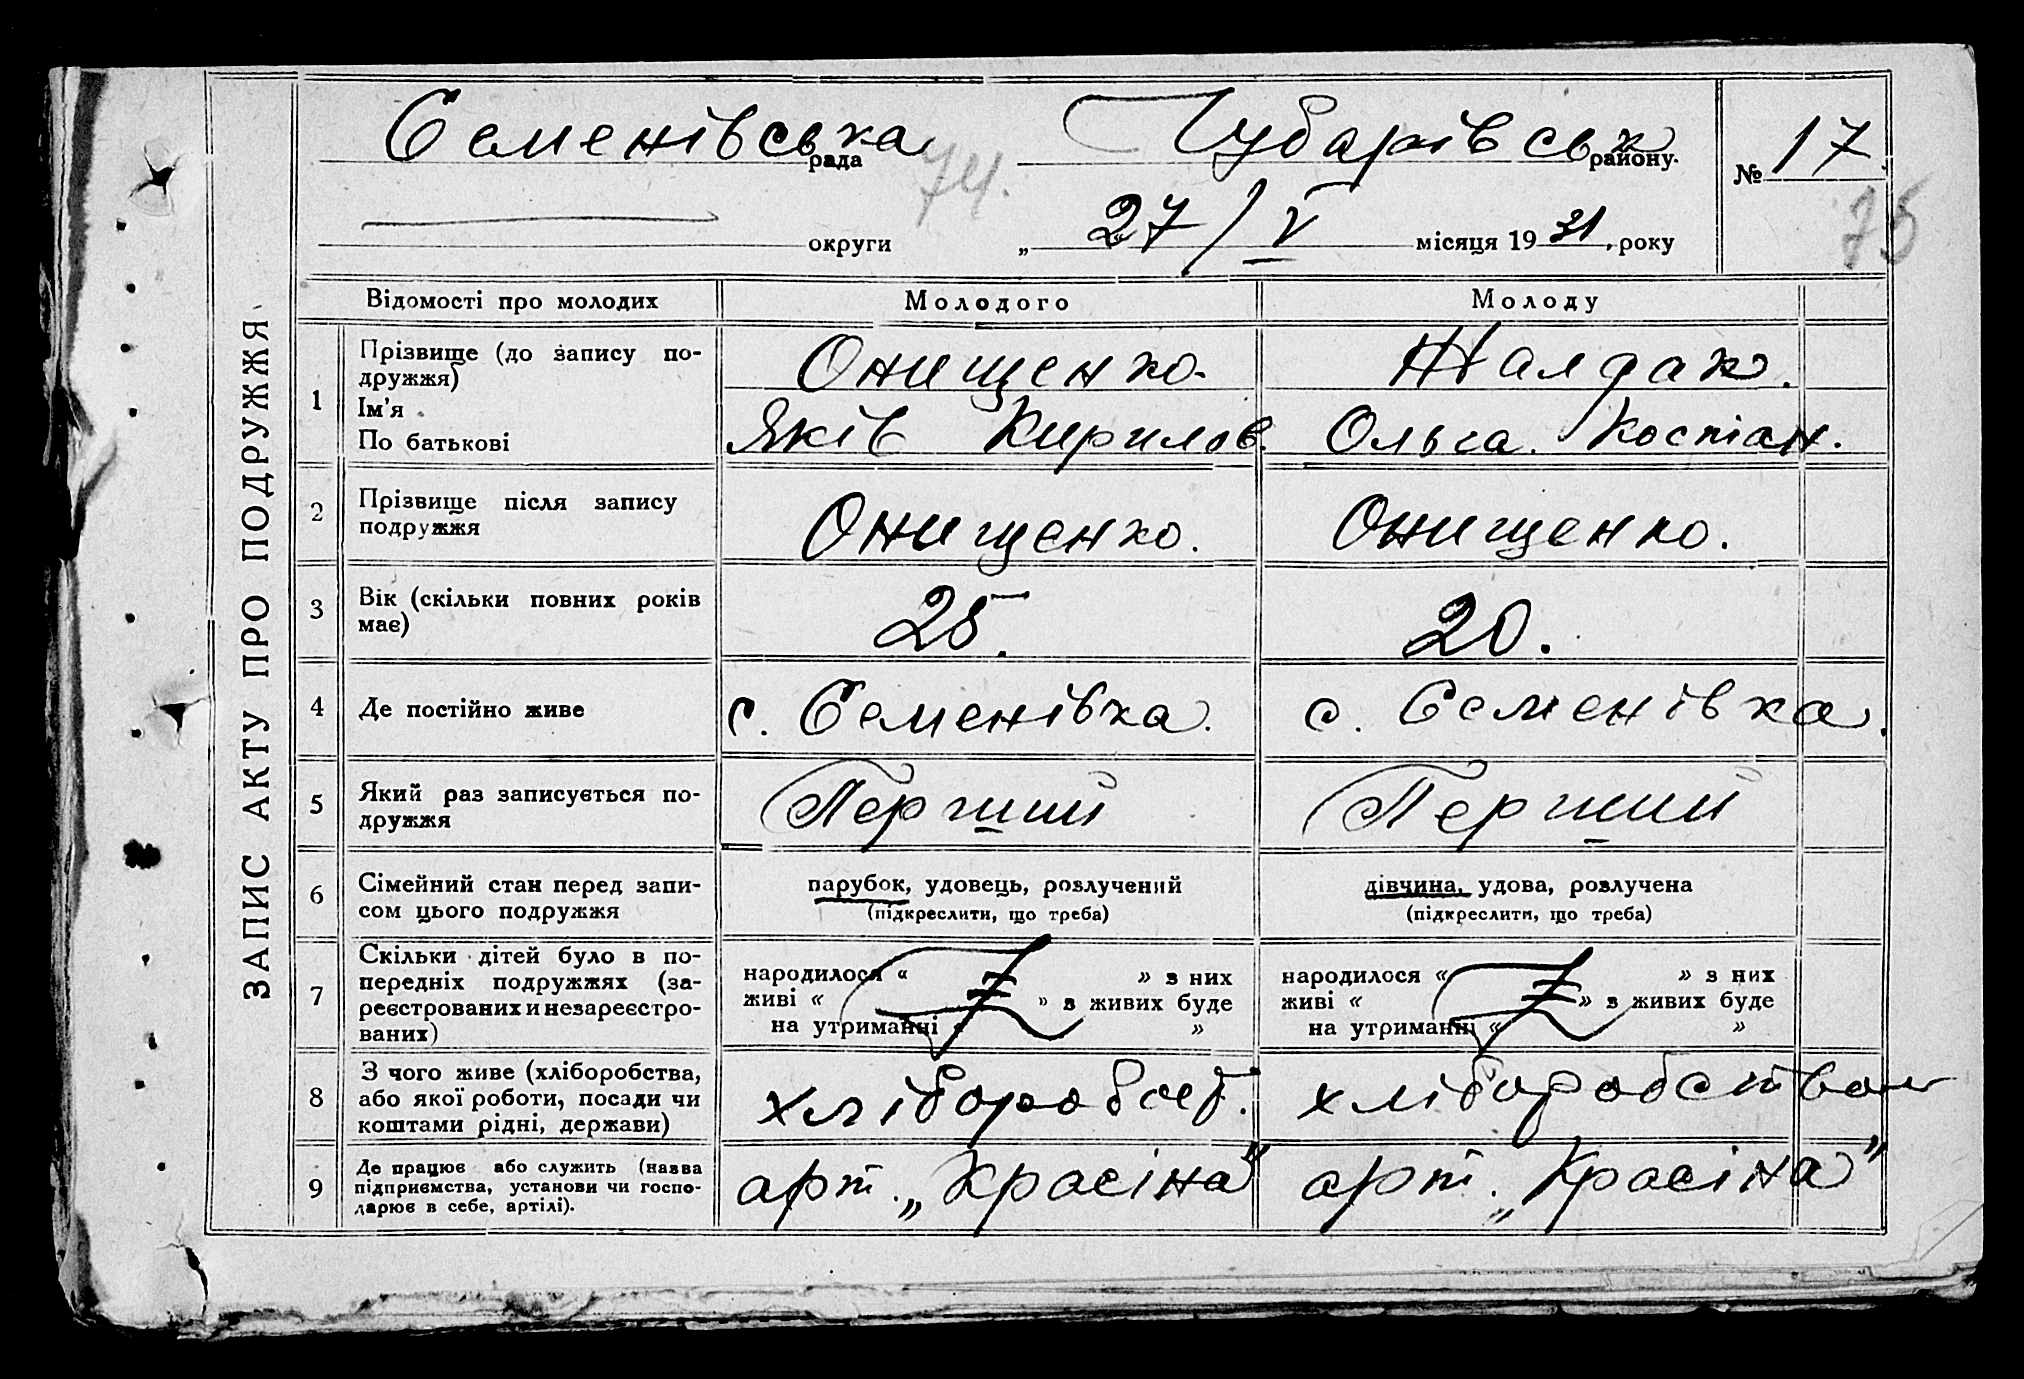 ЗАПИС АКТУ ПРО ПОДРУЖЖЯ
Семенівська рада Чубарівськ району. № 17.
74. 75
округи „ 27/V місяця 1931 року
Відомості про молодих Молодого Молоду
1 Прізвище (до запису по-
дружжя) Онищенко. Жалдак.
Ім'я
По батькові Яків Кирилов. Ольга. Костян.
2 Прізвище після запису
подружжя Онищенко. Онищенко.
3 Вік (скільки повних років
має) 25. 20.
4 Де постійно живе с. Семенівка. с. Семенівка.
5 Який раз записується по-
дружжя Перший Перший
6 Сімейний стан перед запи-
сом цього подружжя
парубок, удовець, розлучений
(підкреслити, що треба)
дівчина, удова, розлучена
(підкреслити, що треба)
7 Скільки дітей було в по-
передніх подружжях (за-
реєстрованих и незареєстро-
ваних)
народилося « » з них
живі « » з живих буде
на утриманні « »
народилося « » з них
живі « » з живих буде
на утриманні « »
8 З чого живе (хліборобства,
або якої роботи, посади чи
коштами рідні, держави)
хліборобств. хліборобством
9 Де працює або служить (назва
підприємства, установи чи госпо-
дарює в себе, артілі).
арт. „Красіна" арт. „Красіна"